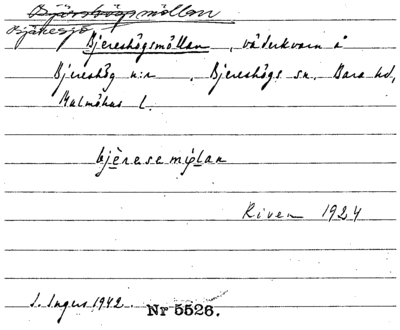 Bjärshögsmöllan
Bjäresjö
Bjereshögsmöllan, väderkvarn å
Bjereshög n:r , Bjereshögs sn, Bara hd,
Malmöhus l.
bjèresemølan
Riven 1924
S. Ingers 1942. Nr 5526.